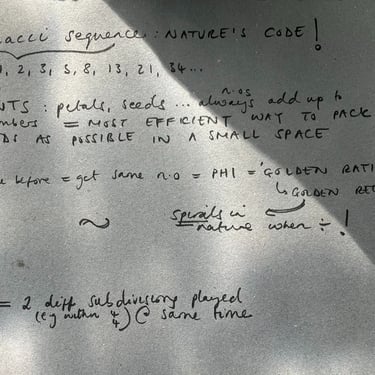 acci sequence : NATURE'S CODE !
1, 2, 3, 5, 8, 13, 21, 34 ...
NTS : petals, seeds ... always n.os add up to
mbers = MOST EFFICIENT WAY TO PACK
DS AS POSSIBLE IN A SMALL SPACE
before = get same n.o = PHI = 'GOLDEN RATI
↳ GOLDEN REC
~ spirals in
nature when ÷ !
= 2 diff subdivisions played
(eg within 4/4) @ same time